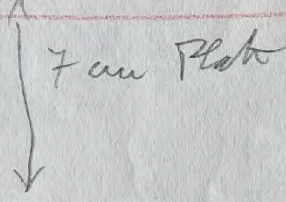 7 cm Platz